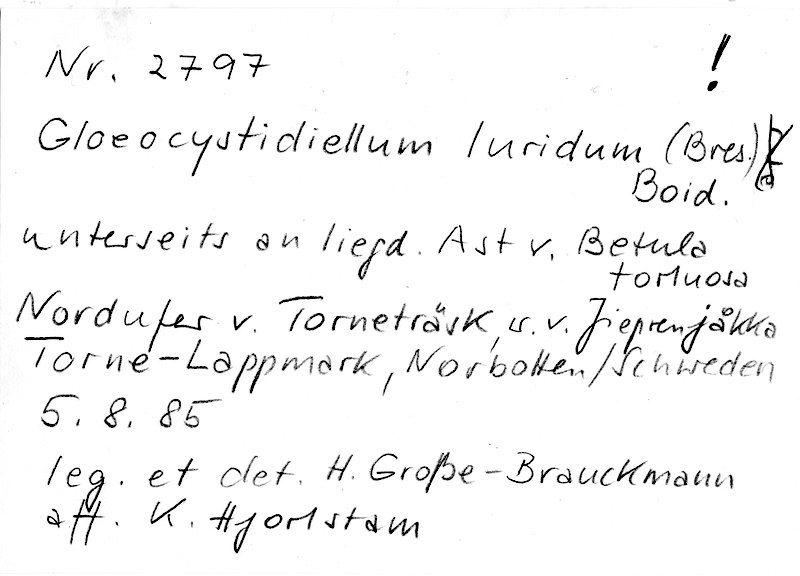 Nr. 2797 !
Gloeocystidiellum luridum (Bres.)
Boid.
unterseits an liegd. Ast v. Betula
tortuosa
Nordufer v. Torneträsk, w. v. Jieprenjåkka
Torne-Lappmark, Norbotten/Schweden
5. 8. 85
leg. et det. H. Große-Brauckmann
aff. K. Hjortstam